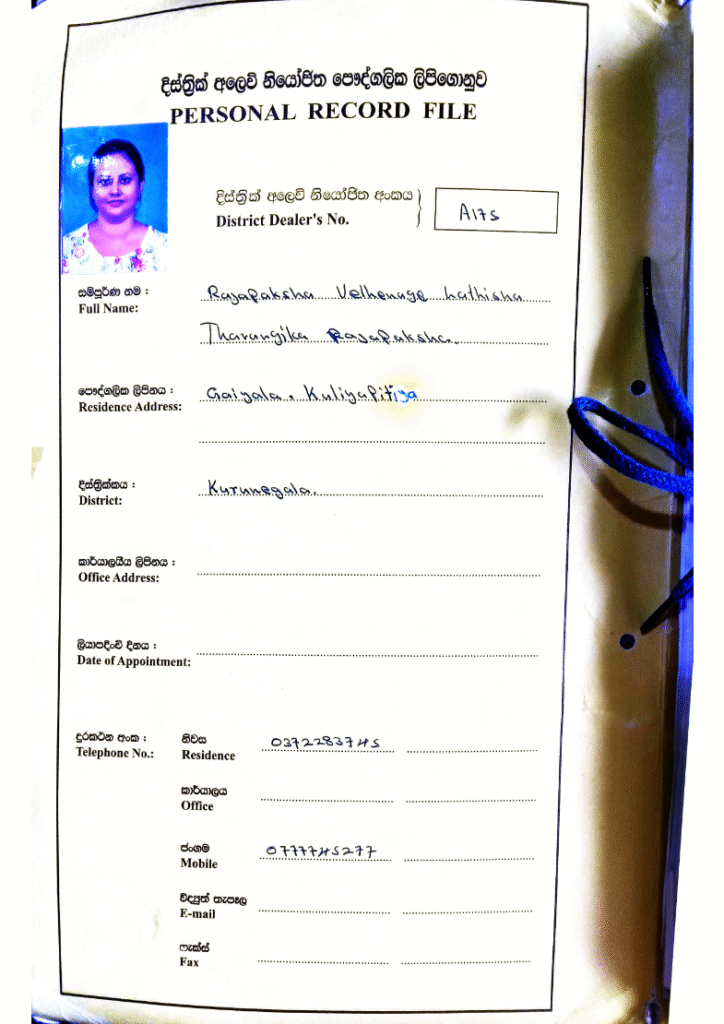 දිස්ත්‍රික් අලෙවි නියෝජිත පෞද්ගලික ලිපිගොනුව
PERSONAL RECORD FILE
දිස්ත්‍රික් අලෙවි නියෝජිත අංකය
District Dealer's No.
A175
සම්පූර්ණ නම :
Full Name:
Rajapaksha Velhenage Lathisha
Tharangika Rajapaksha.
පෞද්ගලික ලිපිනය :
Residence Address:
Gaiyala, Kuliyapitiya
දිස්ත්‍රික්කය :
District:
Kurunegala.
කාර්යාලයීය ලිපිනය :
Office Address:
ලියාපදිංචි දිනය :
Date of Appointment:
දුරකථන අංක :
Telephone No.:
නිවස
Residence
0372283745
කාර්යාලය
Office
ජංගම
Mobile
0777745277
විද්‍යුත් තැපෑල
E-mail
ෆැක්ස්
Fax